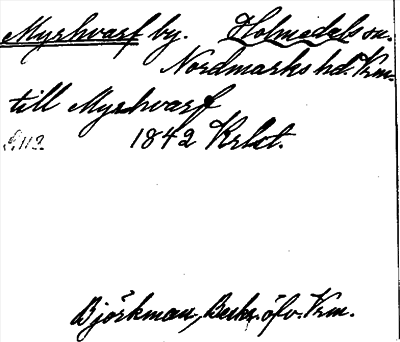 Myrhvarf by. Holmedals sn.
Nordmarks hd. Vrm.
till Myrhvarf
1842 Krlct.
Björkman, Beskr. öfv. Vrm.